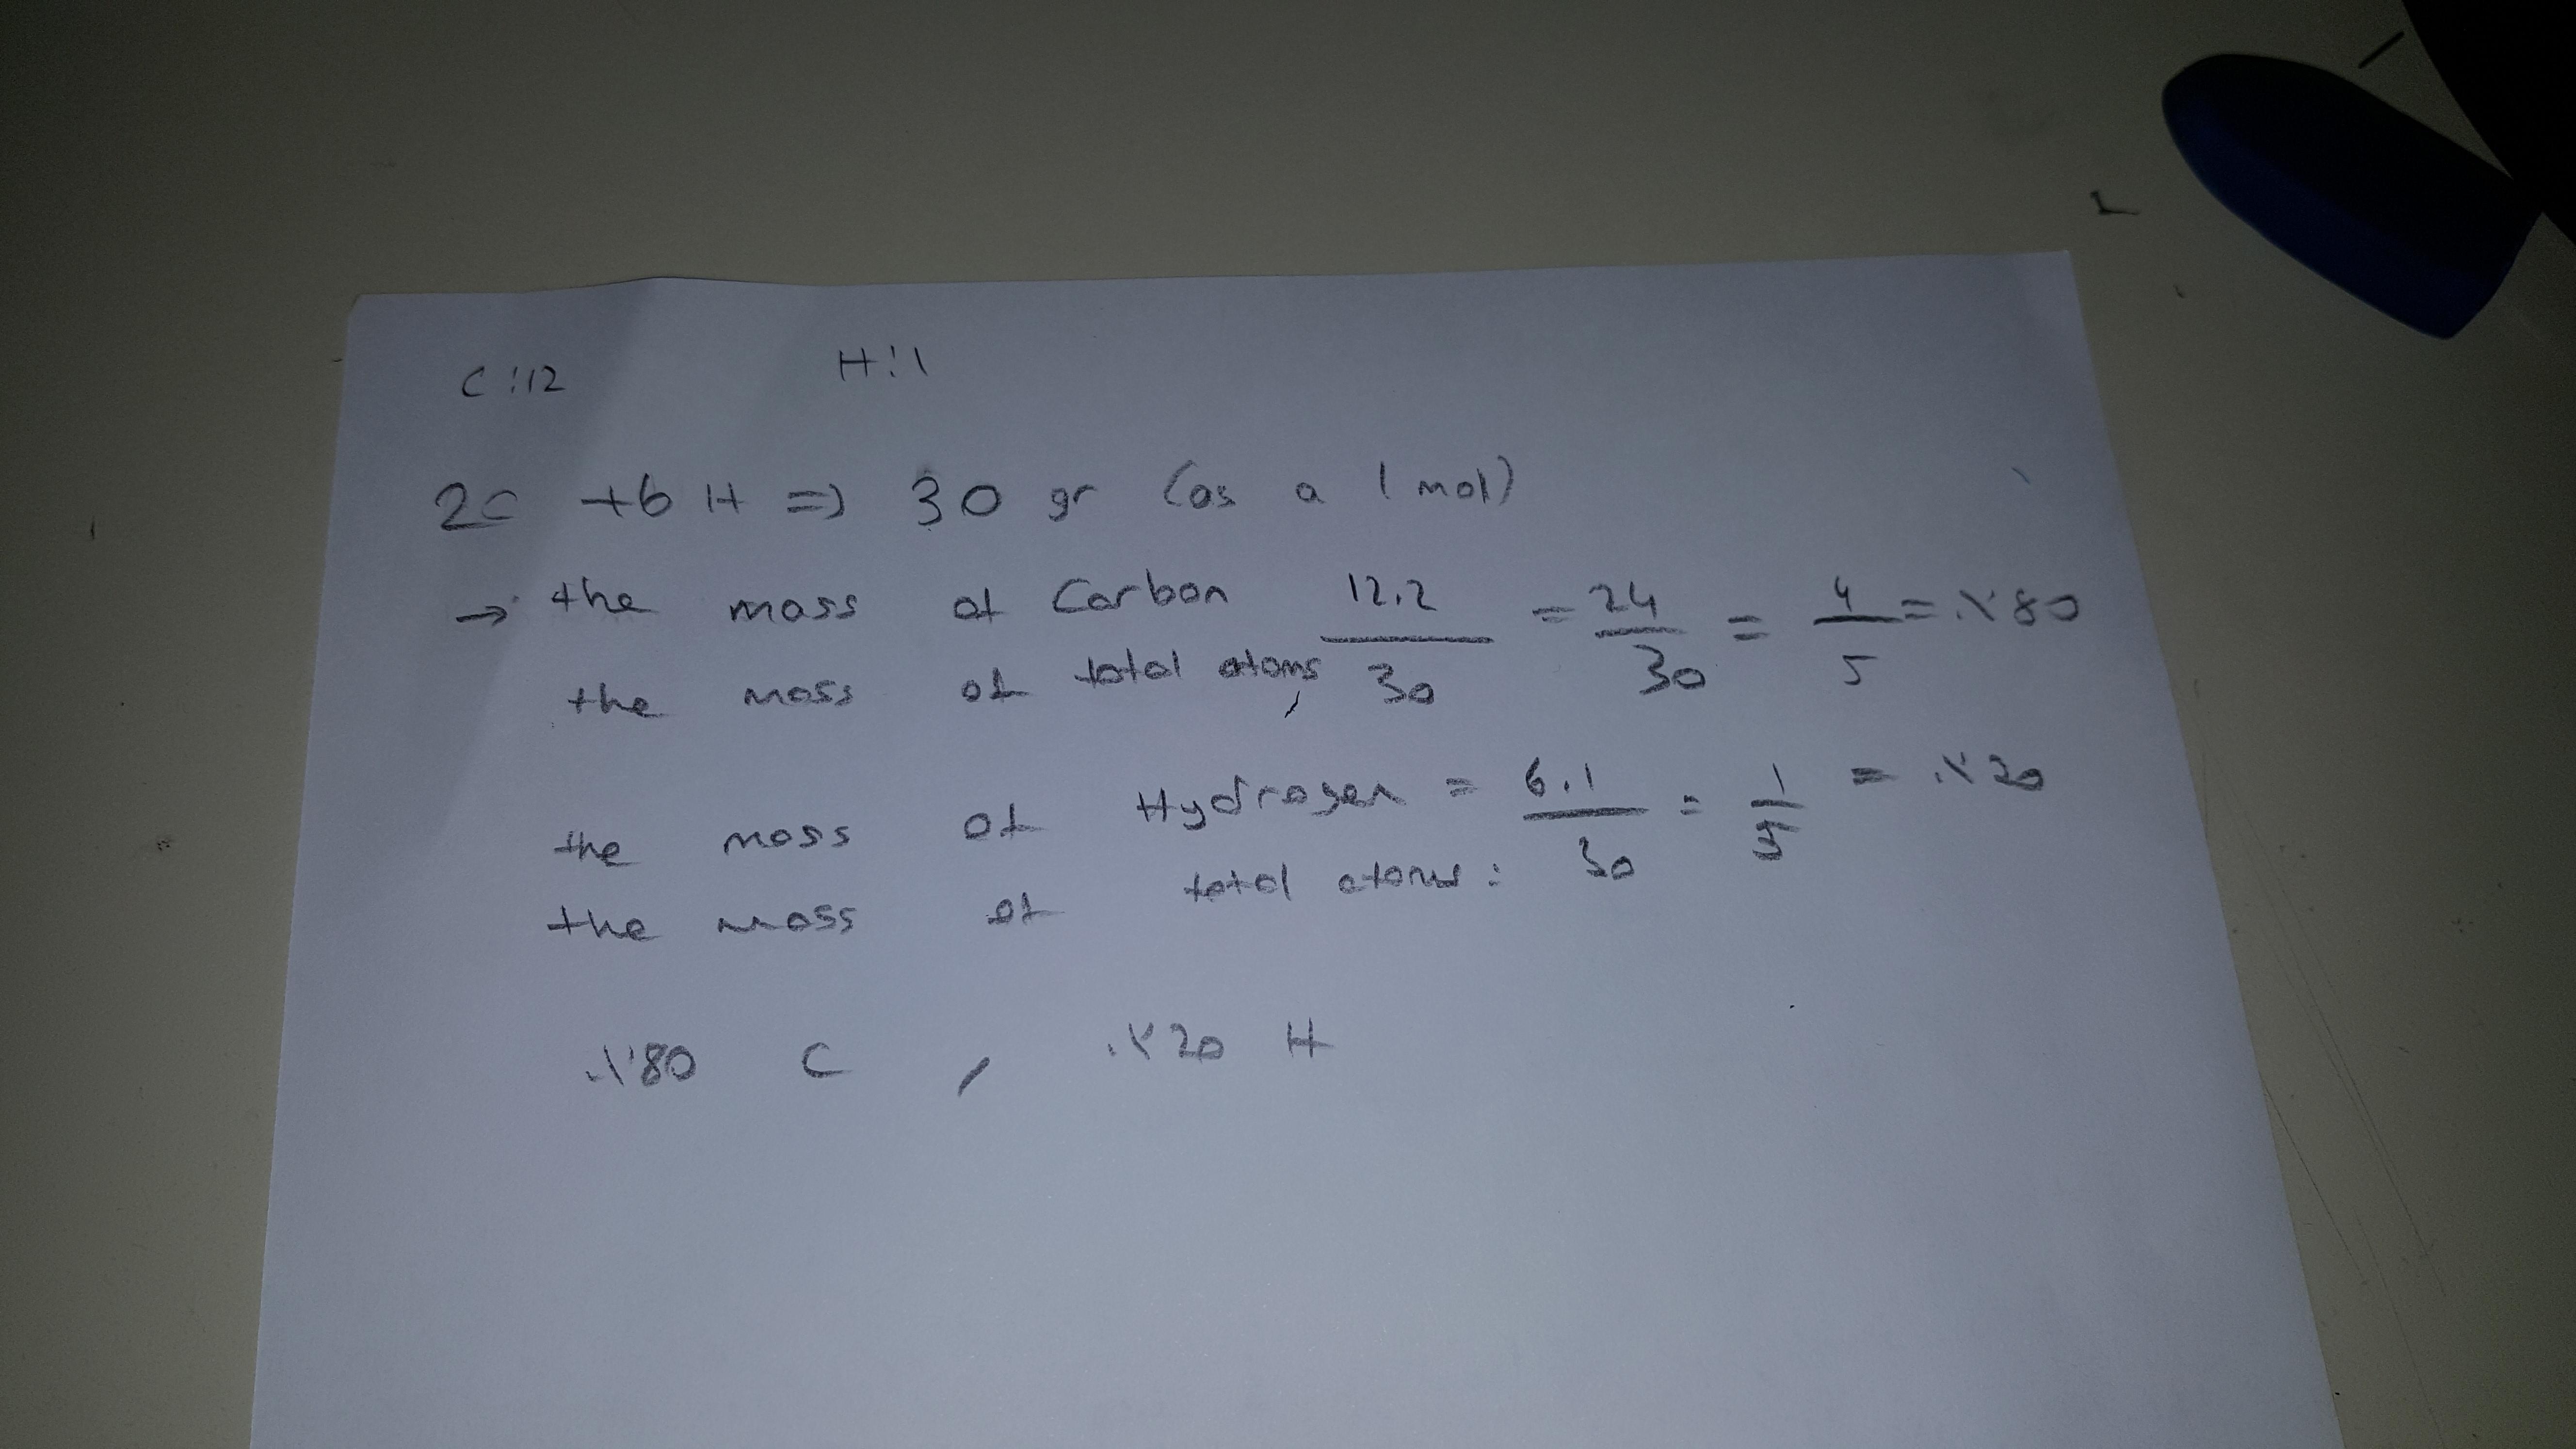 C:12 H:1
2C +6 H => 30 gr (as a 1 mol)
→ the mass of Carbon 12.2 = 24 = 4 = %80
the mass of total atoms, 30 30 5
the mass of Hydrogen = 6.1 = 1 = %20
the mass of total atoms: 30 5
%80 C , %20 H